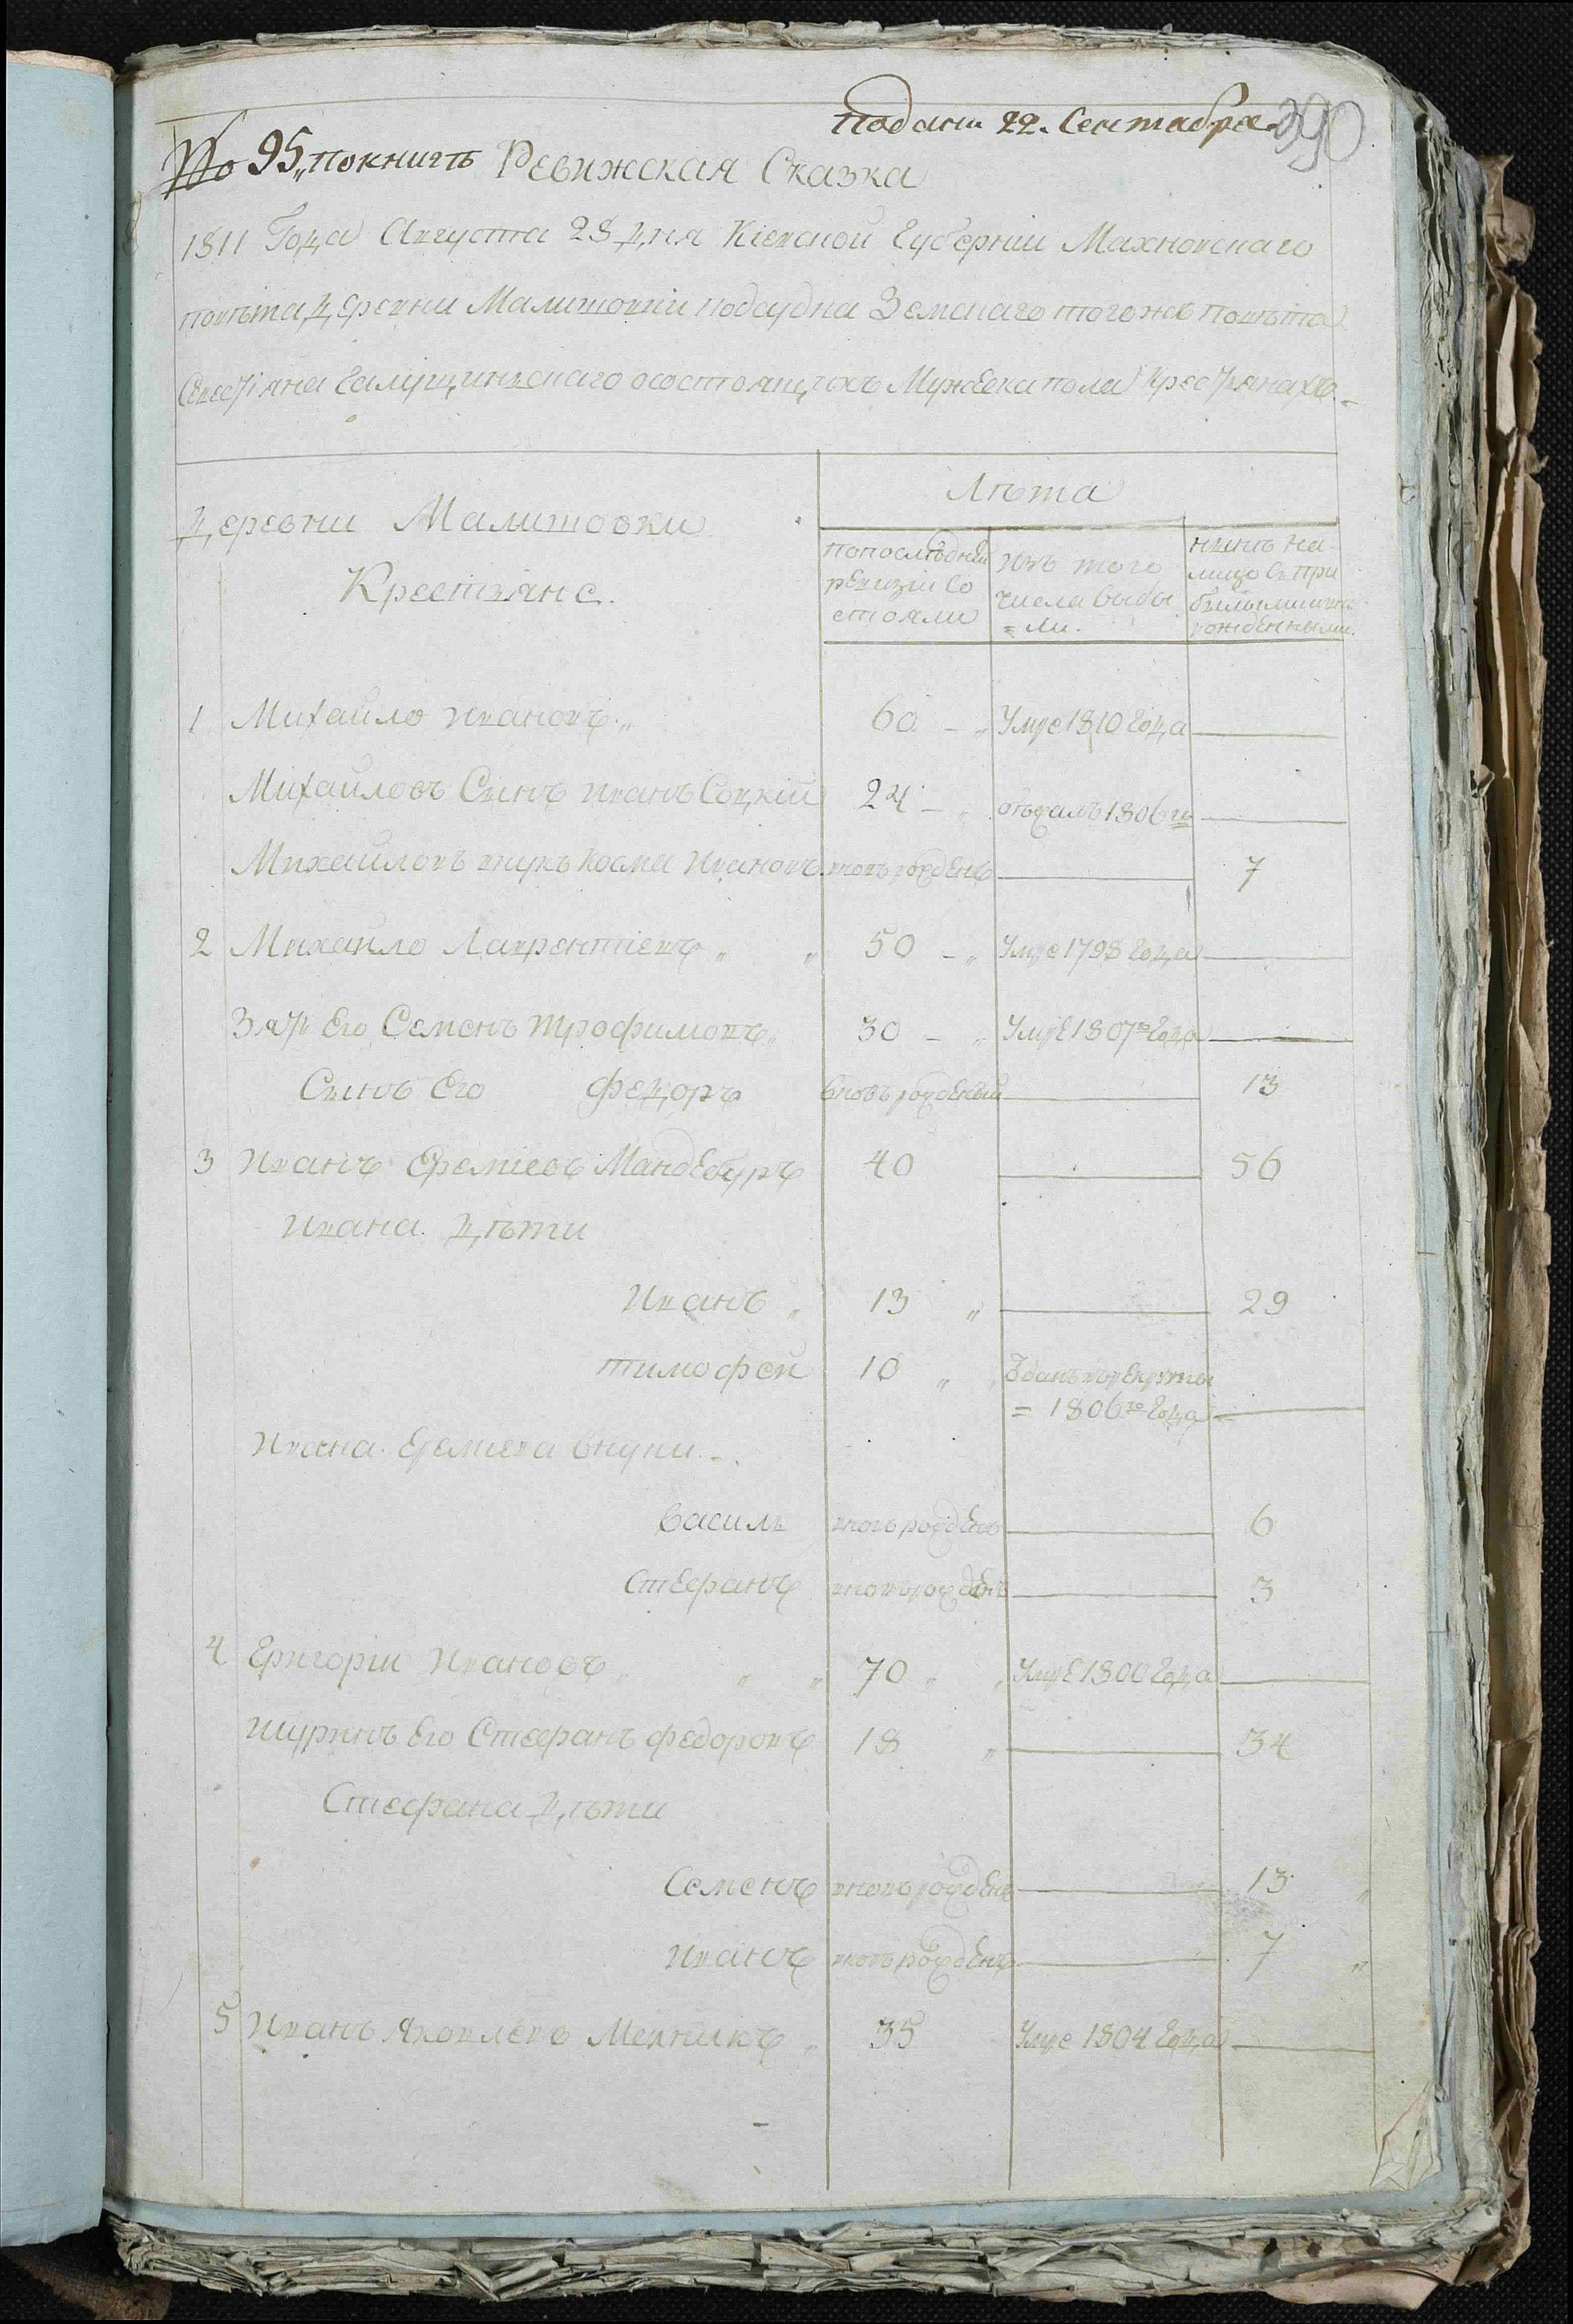 подани 22. Сентабра
390
№ 95„ покнигѣ Ревижская Сказка
1811 Года Августа 28 дня Кіевской Губерніи Махновскаго
повѣта деревни Малишовки подсудна Земскаго тогожъ повѣта
осостоящихъ Мужеска пола Крестянахъ.
Деревни Малишовки
Крестяне.
Лѣта
попослѣдней ревизіи состояли
изъ того числа выбы=ли.
нынѣ на лицо съ при рожденными.
1 Михайло Ивановъ„ 60 – „ Умре 1810 Года
Михайловъ Сынъ Иванъ Соцкій 24 – „ 1806 го
Михайловъ внукъ Косма Ивановъ вновърожденъ 7
2 Михайло Лаврентіевъ „ „ 50 – „ Умре 1798 Года
Зять Его Семенъ Трофимовъ„ 30 – „ Умре 1807го Года
Сынъ Его Федоръ вновърожденый 13
3 Иванъ Ереміевъ Мандебуръ 40 56
Ивана дѣти
Иванъ „ 13 „ 29
Тимофей 10 „ Зданъ врекруты
= 1806го Года
Ивана Ереміева внуки.
Василь вновърожденъ 6
Стефанъ вновърожденъ 3
4 Григорій Ивановъ „ „ „ 70 „ „ Умре 1800 Года
Шуринъ Его Стефанъ Федоровъ 18 „ 34
Стефана дѣти
Семенъ вновърожденъ 13 „
Иванъ вновърожденъ 7 „
5 Иванъ Яковлевъ Мелникъ „ 35 Умре 1804 Года